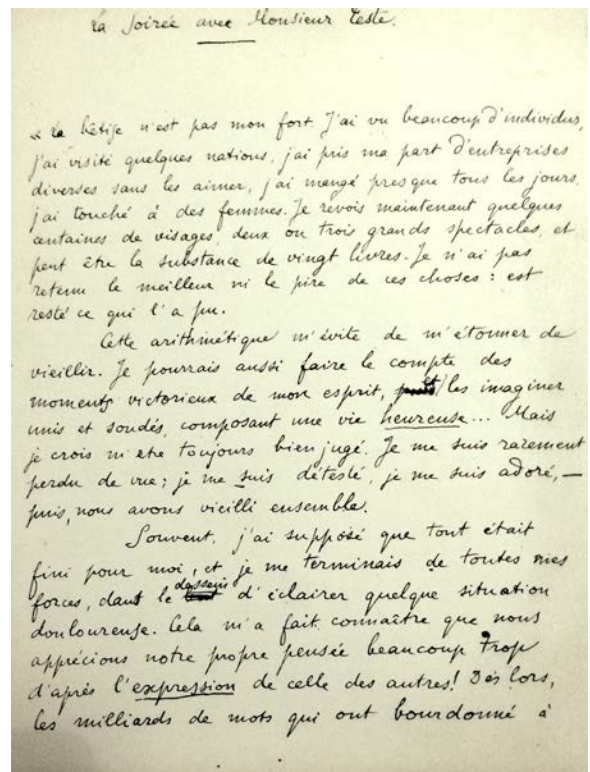 La Soirée avec Monsieur Teste.
« La bêtise n'est pas mon fort. J'ai vu beaucoup d'individus,
j'ai visité quelques nations, j'ai pris ma part d'entreprises
diverses sans les aimer, j'ai mangé presque tous les jours,
j'ai touché à des femmes. Je revois maintenant quelques
centaines de visages, deux ou trois grands spectacles, et
peut être la substance de vingt livres. Je n'ai pas
retenu le meilleur ni le pire de ces choses : est
resté ce qui l'a pu.
Cette arithmétique m'évite de m'étonner de
vieillir. Je pourrais aussi faire le compte des
moments victorieux de mon esprit, et les imaginer
unis et soudés, composant une vie heureuse... Mais
je crois m'être toujours bien jugé. Je me suis rarement
perdu de vue ; je me suis détesté, je me suis adoré, —
puis, nous avons vieilli ensemble.
Souvent, j'ai supposé que tout était
fini pour moi, et je me terminais de toutes mes
forces, dans le dessein d'éclairer quelque situation
douloureuse. Cela m'a fait connaître que nous
apprécions notre propre pensée beaucoup trop
d'après l'expression de celle des autres ! Dès lors,
les milliards de mots qui ont bourdonné à